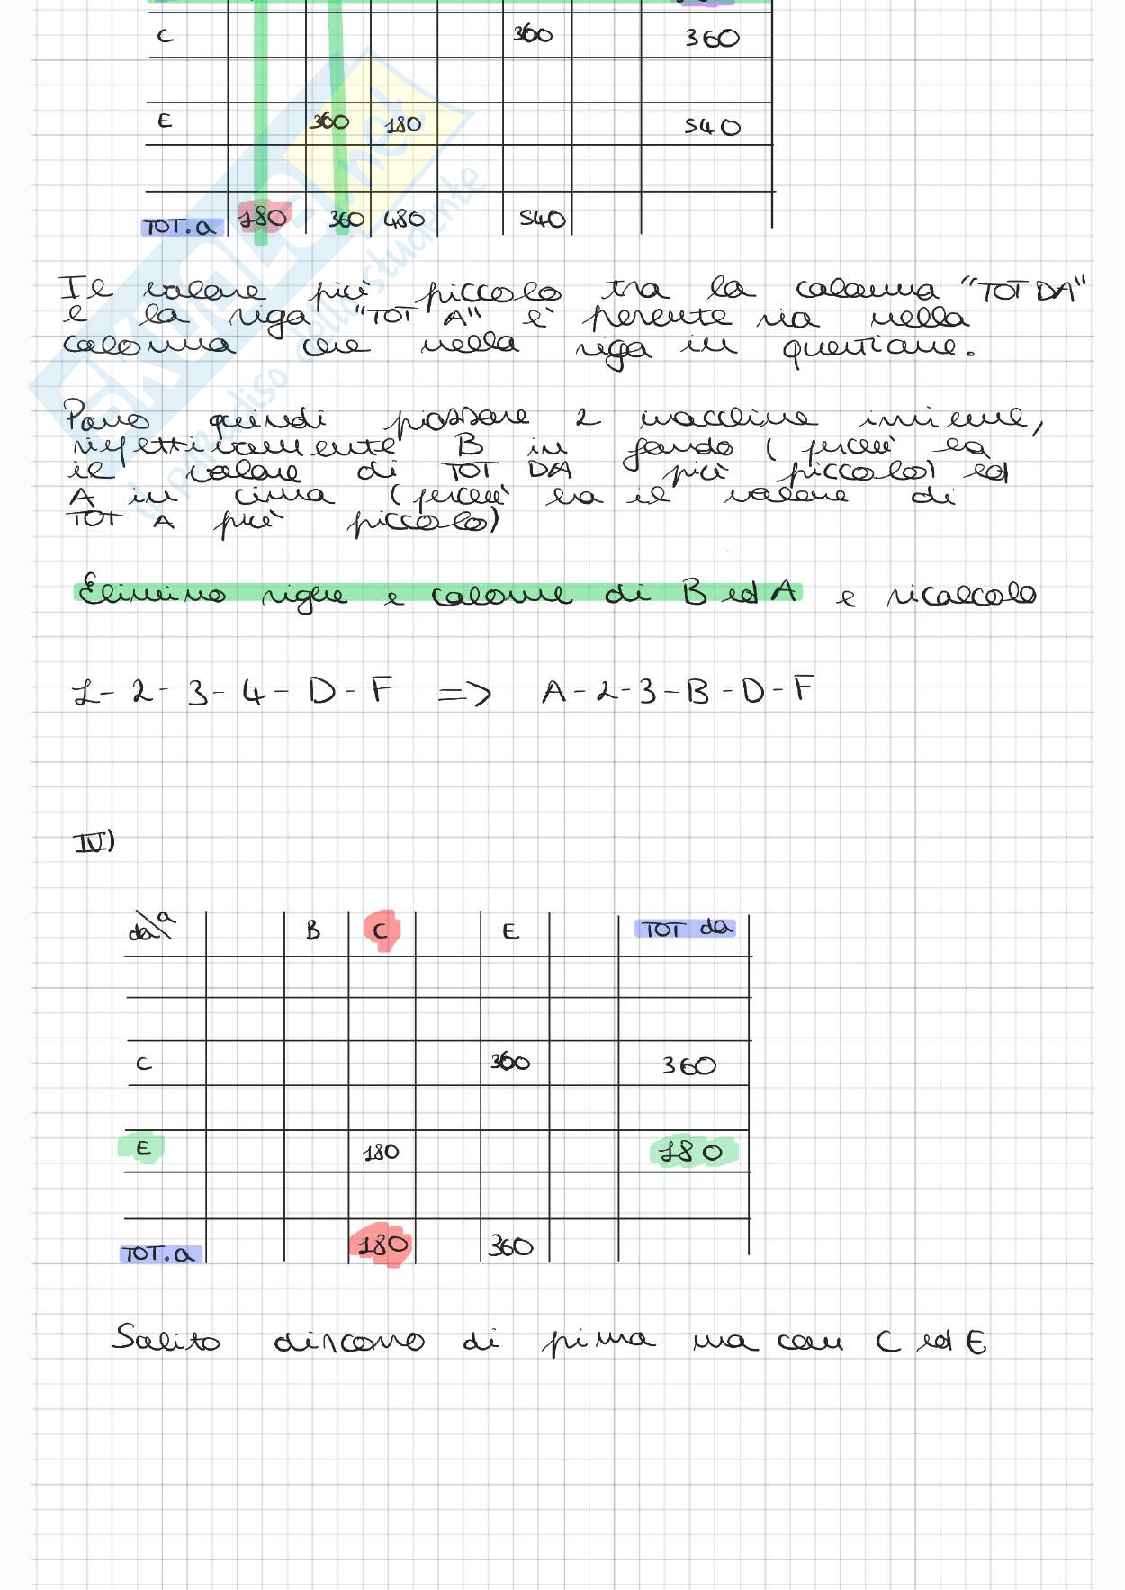 C 360 360
E 360 180 540
TOT.a 180 360 480 540
Il valore più piccolo tra la colonna "TOT DA"
e la riga "TOT A" è presente sia nella
colonna che nella riga in questione.
Posso quindi passare 2 macchine insieme,
rispettivamente B in fondo (perché ha
il valore di TOT DA più piccolo) ed
A in cima (perché ha il valore di
TOT A più piccolo)
Elimino righe e colonne di B ed A e ricalcolo
1-2-3-4-D-F => A-2-3-B-D-F
IV)
da\a B C E TOT da
C 360 360
E 180 180
TOT.a 180 360
Solito discorso di prima ma con C ed E